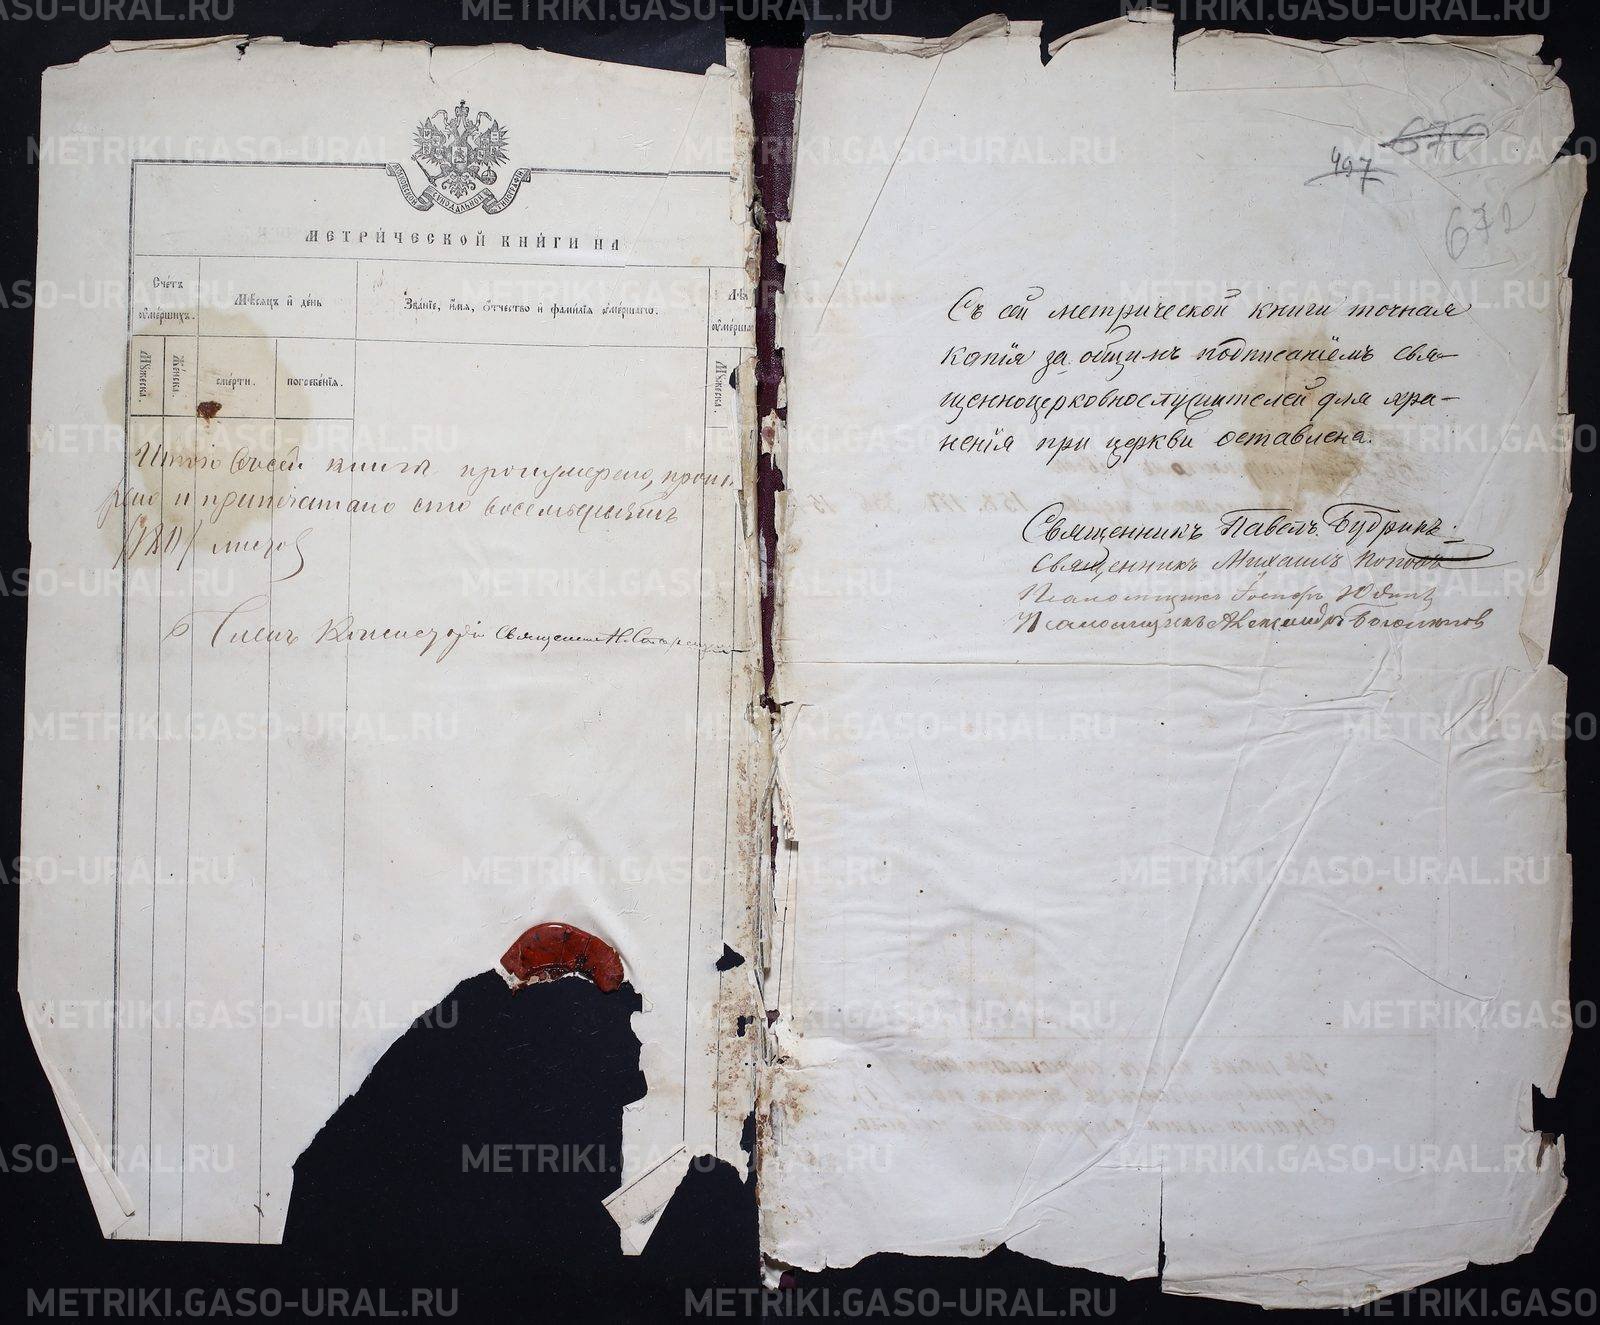 МОСКОВСКОЙ СѴНОДАЛЬНОЙ ТИПОГРАФІИ
МЕТРИ́ЧЕСКОЙ КНИ́ГИ НА
Сче́тъ ᲂуме́ршихъ.
Мѣ́сяцъ и҆ де́нь
Зва́нїе, и҆́мя, ѻ҆́тчество и҆ фами́лїя ᲂуме́ршагѡ.
Мꙋ́жеска.
Же́нска.
сме́рти.
погребе́нїя.
Мꙋ́жеска.
Итого въ сей книгѣ пронумерено,
и припечатано сто восемьдесятъ
листов
Членъ Консисторіи Священникъ Н.
497
670
672
Съ сей метрической книги точная
копія за общимъ подписаніемъ свя-
щенноцерковнослужителей для хра-
ненія при церкви оставлена.
Священникъ Павелъ Будринъ.
Священникъ Михаилъ Поповъ
Псаломщикъ Юдинъ
Псаломщикъ Александръ Боголюбов
METRIKI.GASO-URAL.RU